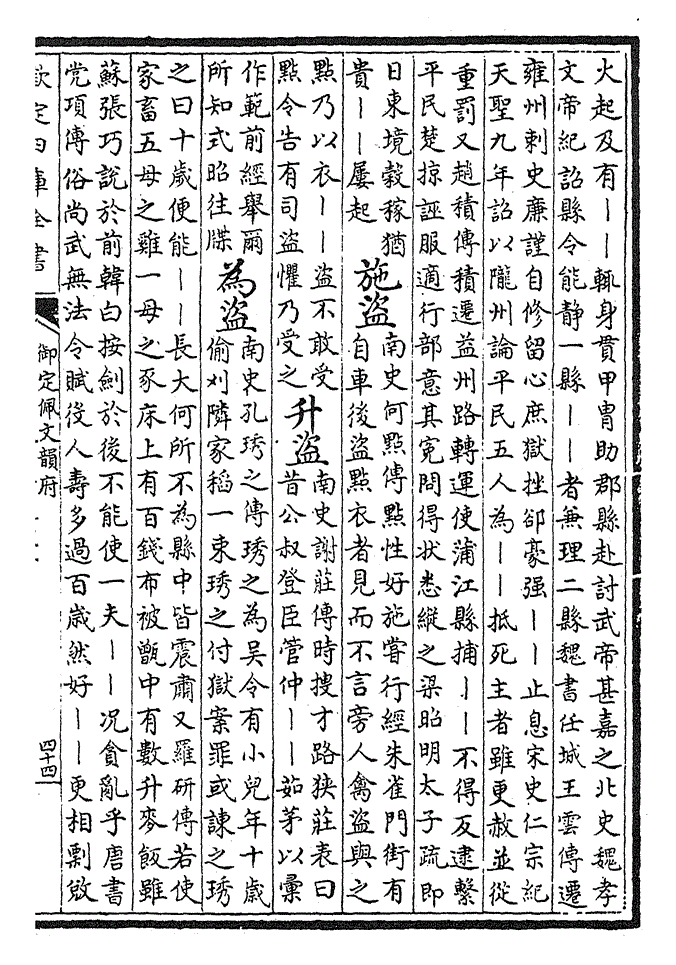 火起及有丨丨輒身貫甲胄助郡縣赴討武帝甚嘉之北史魏孝
文帝紀詔縣令能静一縣丨丨者兼理二縣魏書任城王雲傳遷
雍州刺史廉謹自修留心庶獄挫郤豪强丨丨止息宋史仁宗紀
天聖九年詔以隴州論平民五人為丨丨抵死主者雖更赦並從
重罰又趙積傳積遷益州路轉運使蒲江縣捕丨丨不得反逮繫
平民楚掠誣服適行部意其寃問得状悉縱之梁昭明太子疏即
日東境榖稼猶
貴丨丨屢起
施盗
南史何點傳點性好施嘗行經朱雀門街有
自車後盗點衣者見而不言旁人禽盗與之
點乃以衣丨丨盗不敢受
點令告有司盗懼乃受之
升盗
南史謝莊傳時搜才路狭莊表曰
昔公叔登臣管仲丨丨茹茅以彙
作範前經舉爾
所知式昭往牒
為盗
南史孔琇之傳琇之為吴令有小兒年十歲
偷刈隣家稻一束琇之付獄案罪或諌之琇
之曰十歲便能丨丨長大何所不為縣中皆震肅又羅研傳若使
家畜五母之雞一母之豕床上有百錢布被甑中有數升麥飯雖
蘇張巧說於前韓白按劍於後不能使一夫丨丨况貪亂乎唐書
党項傳俗尚武無法令賦役人壽多過百歲然好丨丨更相剽敓
欽定四庫全書
御定佩文韻府
四十四